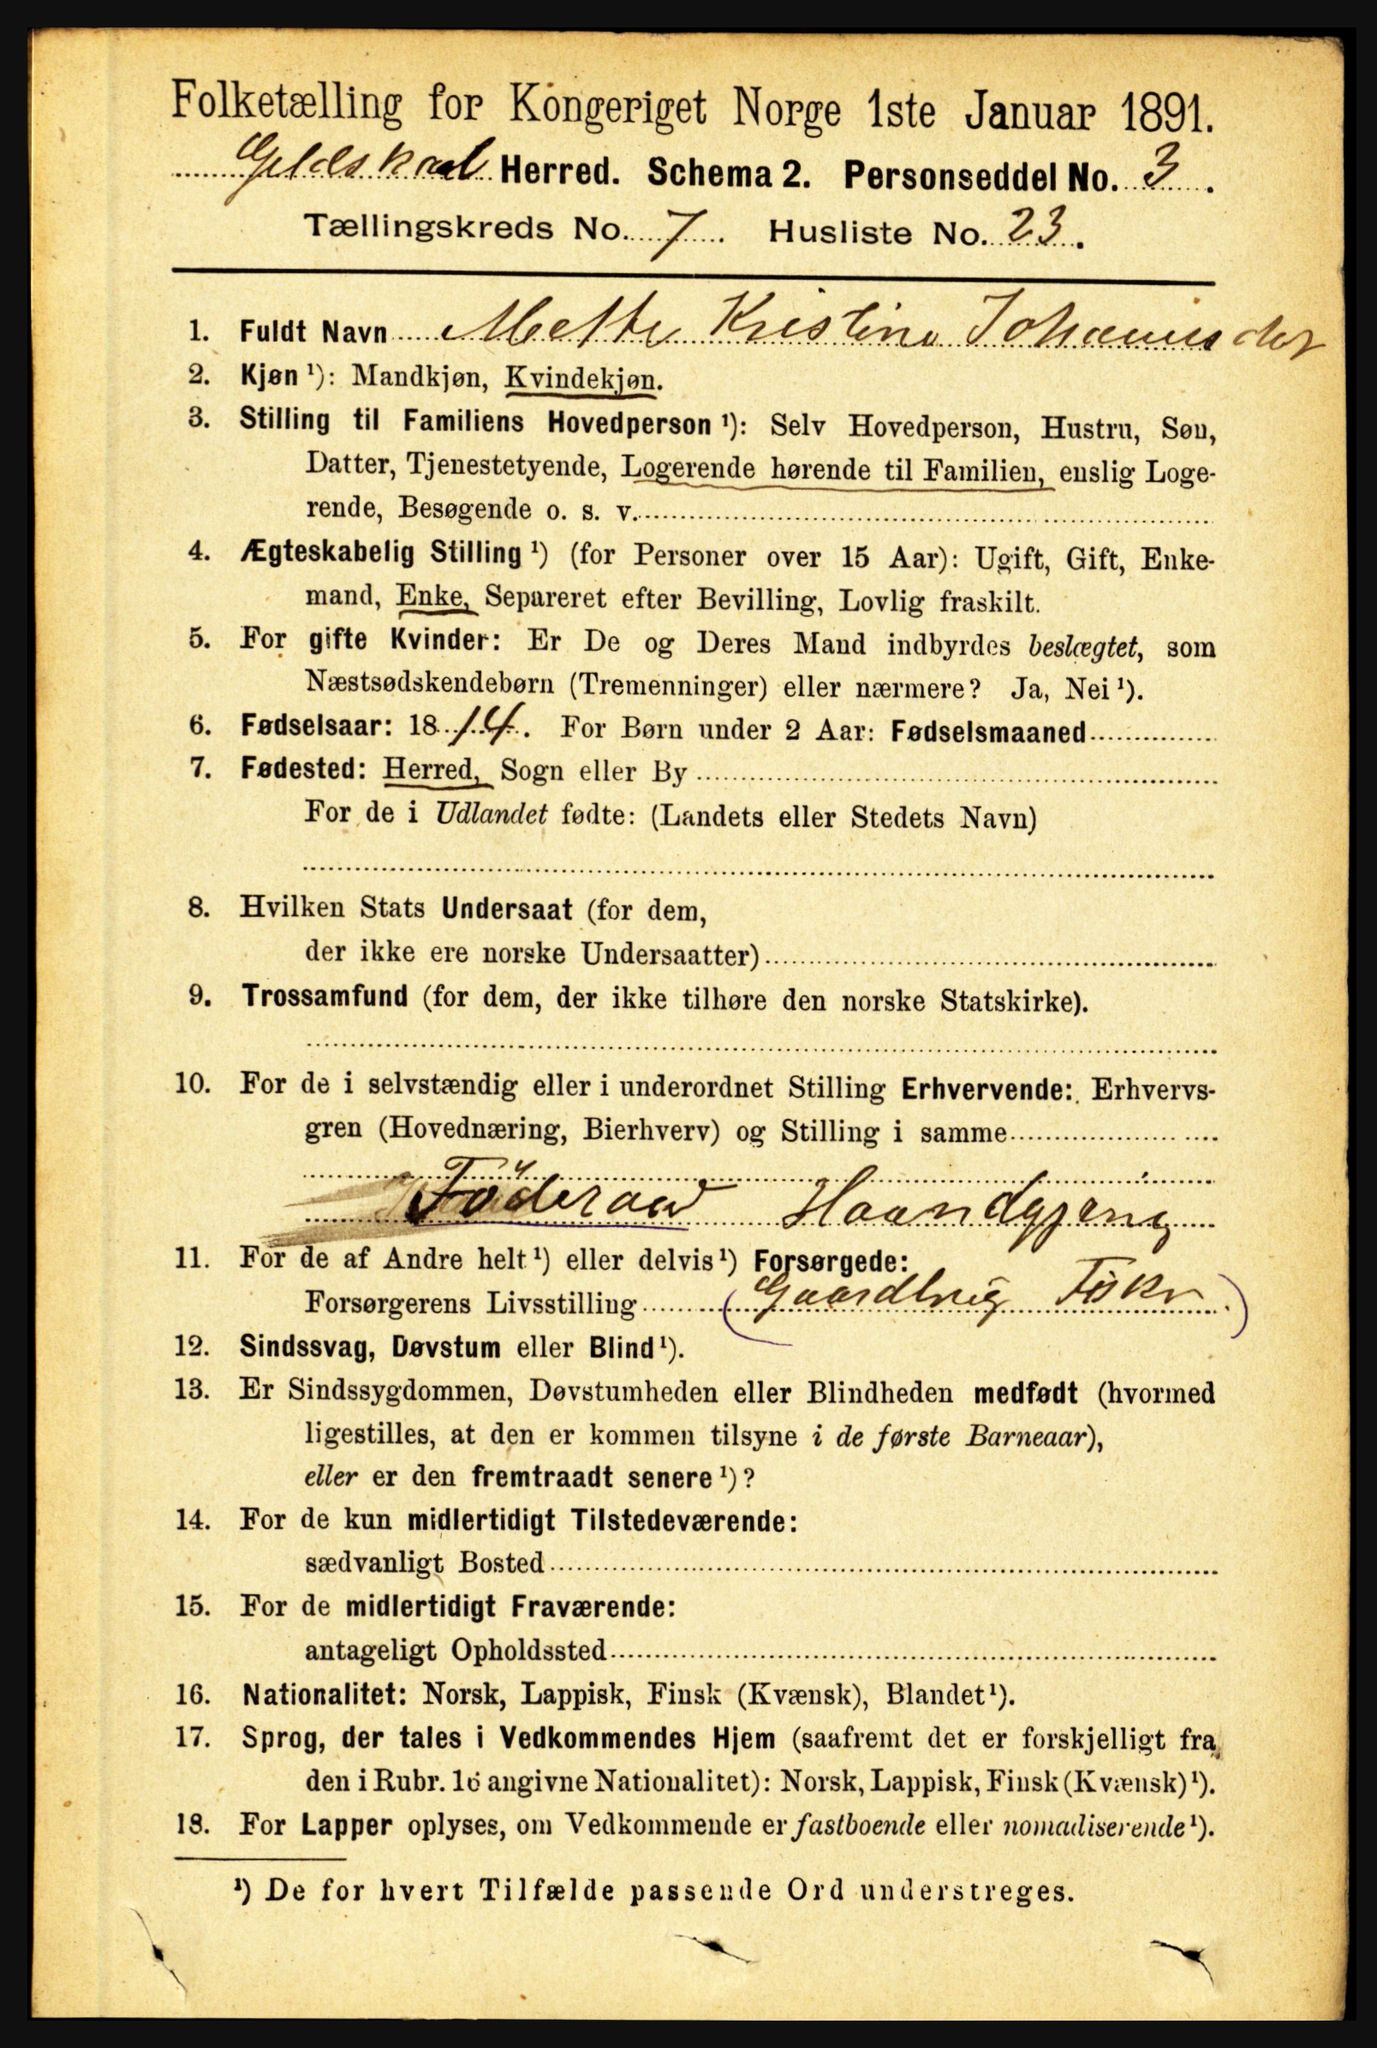 Folketælling for Kongeriget Norge 1ste Januar 1891.
Gildskaal Herred. Schema 2. Personseddel No. 3.
Tællingskreds No. 7. Husliste No. 23.
1. Fuldt Navn Mette Kristine Johannisdtr
2. Kjøn ¹): Mandkjøn, Kvindekjøn.
3. Stilling til Familiens Hovedperson ¹): Selv Hovedperson, Hustru, Søn,
Datter, Tjenestetyende, Logerende hørende til Familien, enslig Loge-
rende, Besøgende o. s. v.
4. Ægteskabelig Stilling ¹) (for Personer over 15 Aar): Ugift, Gift, Enke-
mand, Enke, Separeret efter Bevilling, Lovlig fraskilt.
5. For gifte Kvinder: Er De og Deres Mand indbyrdes beslægtet, som
Næstsødskendebørn (Tremenninger) eller nærmere? Ja, Nei ¹).
6. Fødselsaar: 1814. For Børn under 2 Aar: Fødselsmaaned
7. Fødested: Herred, Sogn eller By
For de i Udlandet fødte: (Landets eller Stedets Navn)
8. Hvilken Stats Undersaat (for dem,
der ikke ere norske Undersaatter)
9. Trossamfund (for dem, der ikke tilhøre den norske Statskirke).
10. For de i selvstændig eller i underordnet Stilling Erhvervende: Erhvervs-
gren (Hovednæring, Bierhverv) og Stilling i samme
Föderaad Haandgjerig
11. For de af Andre helt ¹) eller delvis ¹) Forsørgede:
Forsørgerens Livsstilling (Gaardbrug Fisker)
12. Sindssvag, Døvstum eller Blind ¹).
13. Er Sindssygdommen, Døvstumheden eller Blindheden medfødt (hvormed
ligestilles, at den er kommen tilsyne i de første Barneaar),
eller er den fremtraadt senere ¹)?
14. For de kun midlertidigt Tilstedeværende:
sædvanligt Bosted
15. For de midlertidigt Fraværende:
antageligt Opholdssted
16. Nationalitet: Norsk, Lappisk, Finsk (Kvænsk), Blandet ¹).
17. Sprog, der tales i Vedkommendes Hjem (saafremt det er forskjelligt fra
den i Rubr. 16 angivne Nationalitet): Norsk, Lappisk, Finsk (Kvænsk) ¹).
18. For Lapper oplyses, om Vedkommende er fastboende eller nomadiserende ¹).
¹) De for hvert Tilfælde passende Ord understreges.